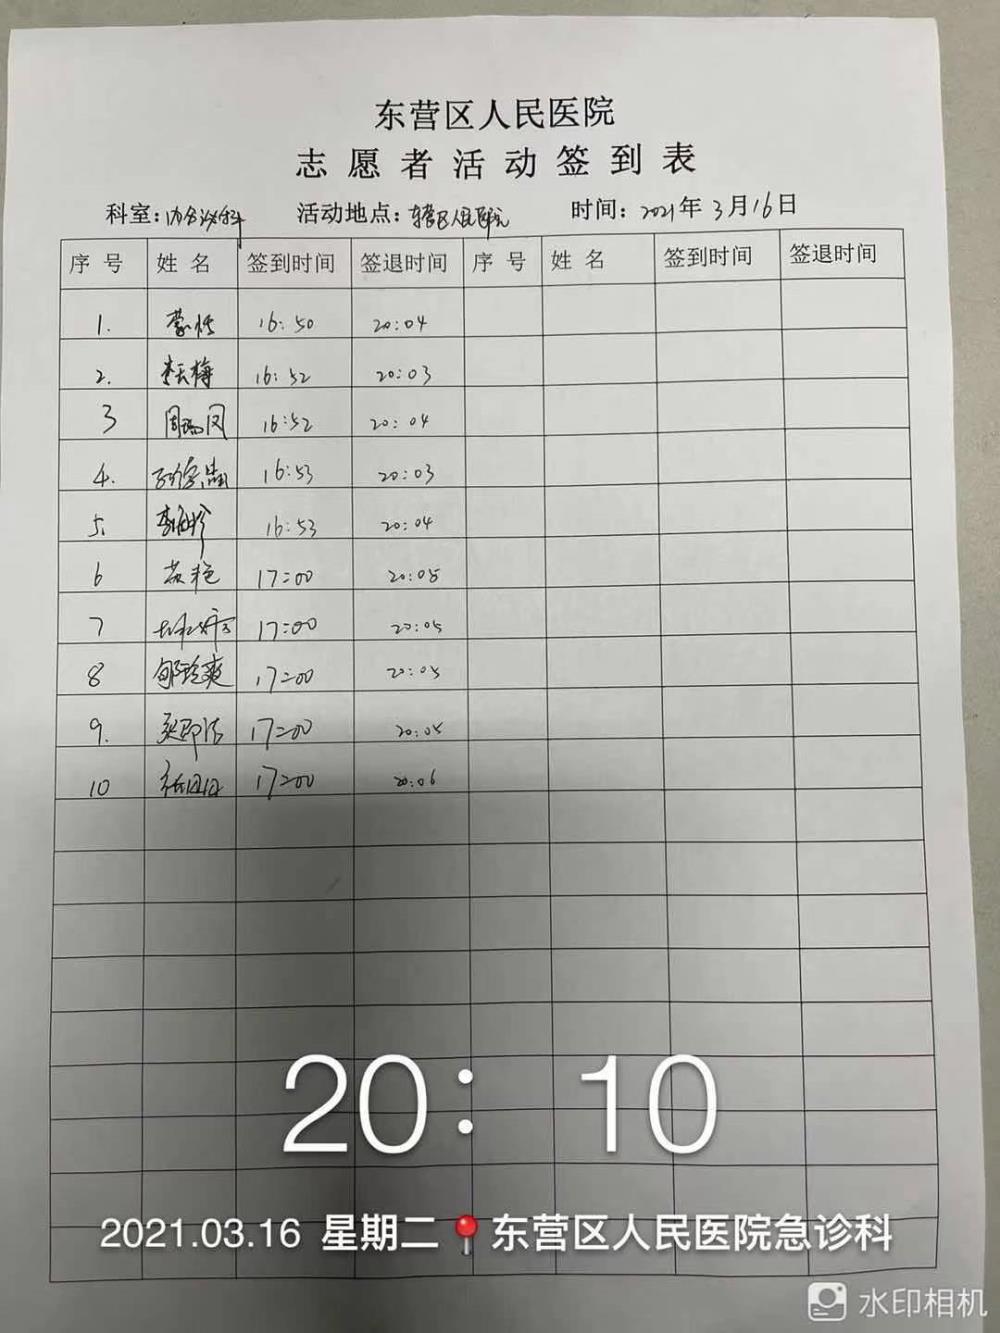 东营区人民医院
志愿者活动签到表
科室：内分泌科 活动地点：东营区人民医院 时间：2021年3月16日
序号 姓名 签到时间 签退时间 序号 姓名 签到时间 签退时间
1. 16:50 20:04
2. 李天梅 16:52 20:03
3 周瑞凤 16:52 20:04
4. 16:53 20:03
5. 李海珍 16:53 20:04
6 苏艳 17:00 20:05
7 17:00 20:05
8 郇玲爽 17:00 20:05
9. 17:00 20:05
10 17:00 20:06
20: 10
2021.03.16 星期二 东营区人民医院急诊科
水印相机